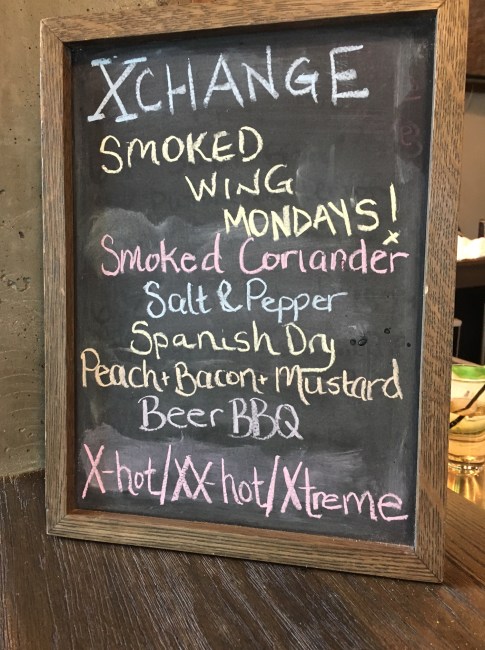 XCHANGE
SMOKED
WING
MONDAYS!
Smoked Coriander
Salt & Pepper
Spanish Dry
Peach + Bacon + Mustard
Beer BBQ
X-hot/XX-hot/Xtreme